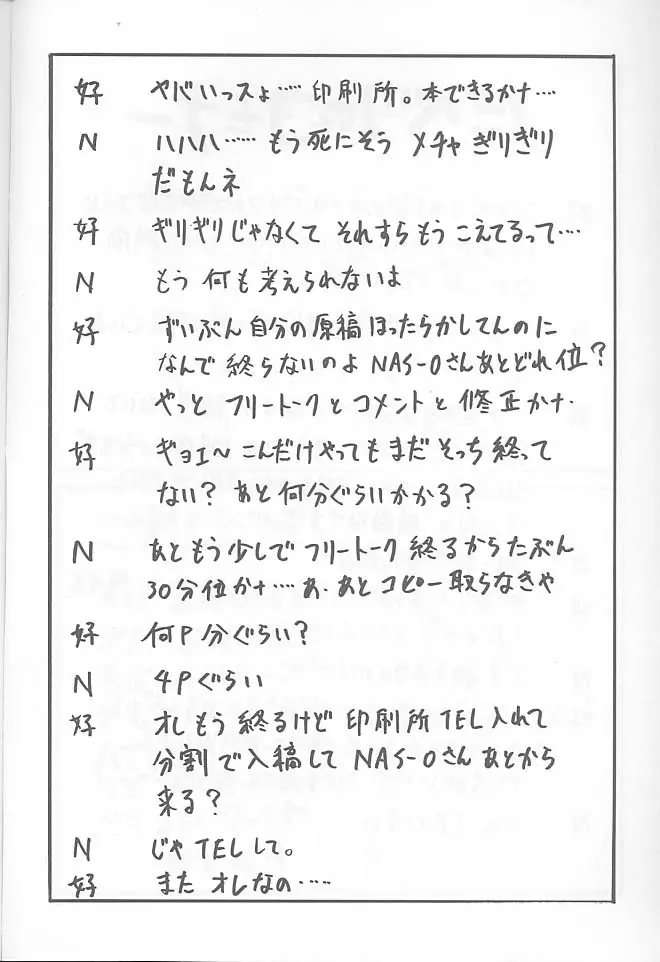 好 ヤバいっスょ……印刷所。本できるかナ…
N ハハハ……もう死にそう メチャぎりぎり
だもんネ
好 ギリギリじゃなくて それすらもうこえてるって…
N もう 何も考えられないよ
好 ずいぶん自分の原稿ほったらかしてんのに
なんで終らないのよ NAS-Oさんあとどれ位?
N やっと フリートークとコメントと修正かナ.
好 ギョエ〜 こんだけやってもまだそっち終って
ない? あと何分ぐらいかかる?
N あともう少しでフリートーク終るからたぶん
30分位かナ…. あ. あとコピー取らなきゃ
好 何P分ぐらい?
N 4Pぐらい
好 オレもう終るけど 印刷所TEL入れて
分割で入稿して NAS-Oさんあとから
来る?
N じゃTELして。
好 また オレなの……